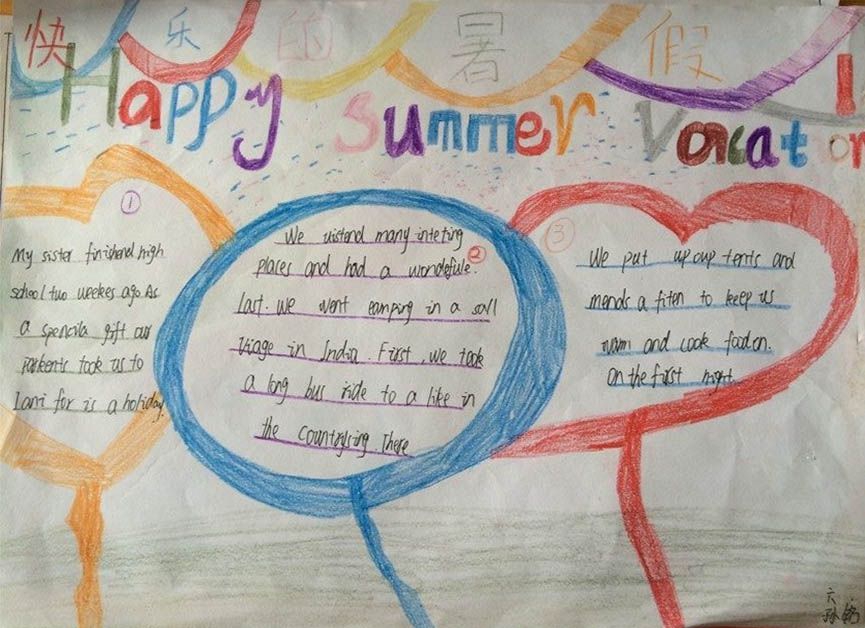 快乐的暑假
Happy Summer Vacation
①
My sister finishend high
school two weekes ago. As
a spencila gift our
parkents took us to
Iani for is a holiday.
②
We uistend many inteting
places and had a wondefule.
Last. We went camping in a sall
viage in India. First, we took
a long bus ride to a like in
the Countrysring. There
③
We put up oup tents and
mends a fiten to keep us
warm and cook food on.
On the first night.
六
孙